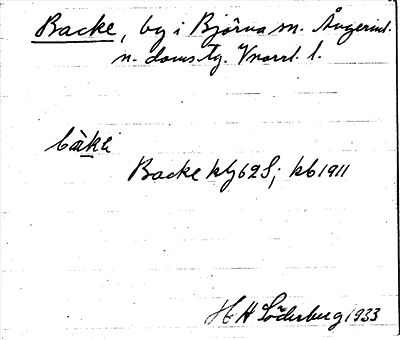 Backe, by i Björna sn. Ångerml.
n. doms.tg. Vnorrl. l.
bàkli
Backe hfl 628; kb 1911
H H Söderberg 1933